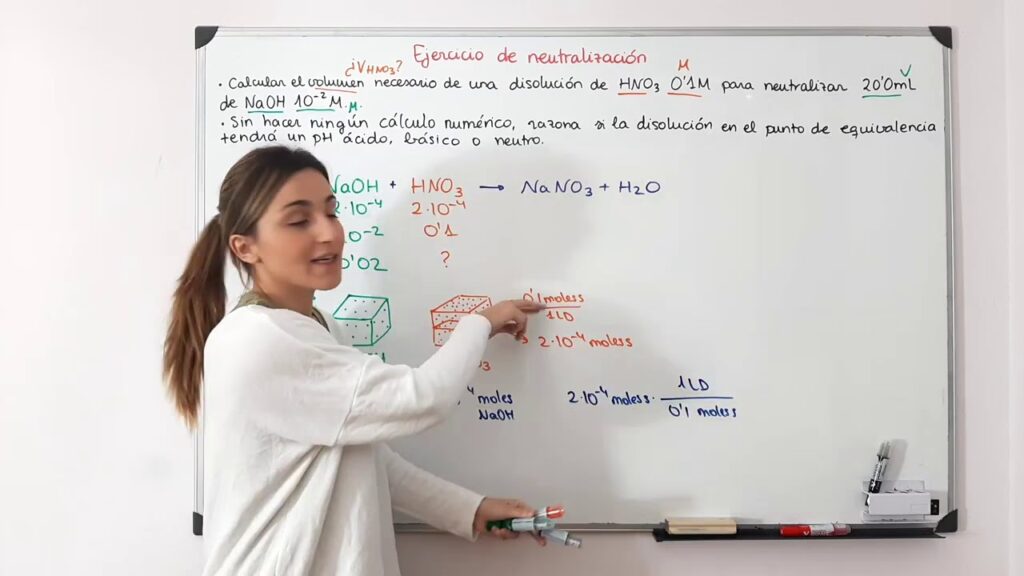 Ejercicio de neutralización
¿VHNO3?
M
· Calcular el volumen necesario de una disolución de HNO₃ 0'1M para neutralizar 20'0mL
de NaOH 10⁻² M. M.
· Sin hacer ningún cálculo numérico, razona si la disolución en el punto de equivalencia
tendrá un pH ácido, básico o neutro.
NaOH + HNO₃ → NaNO₃ + H2O
2·10⁻⁴ 2·10⁻⁴
10⁻² 0'1
0'02 ?
0'1 moless
1LD
2·10⁻⁴ moless
moles
NaOH
2·10⁻⁴ moless · 1LD
0'1 moless